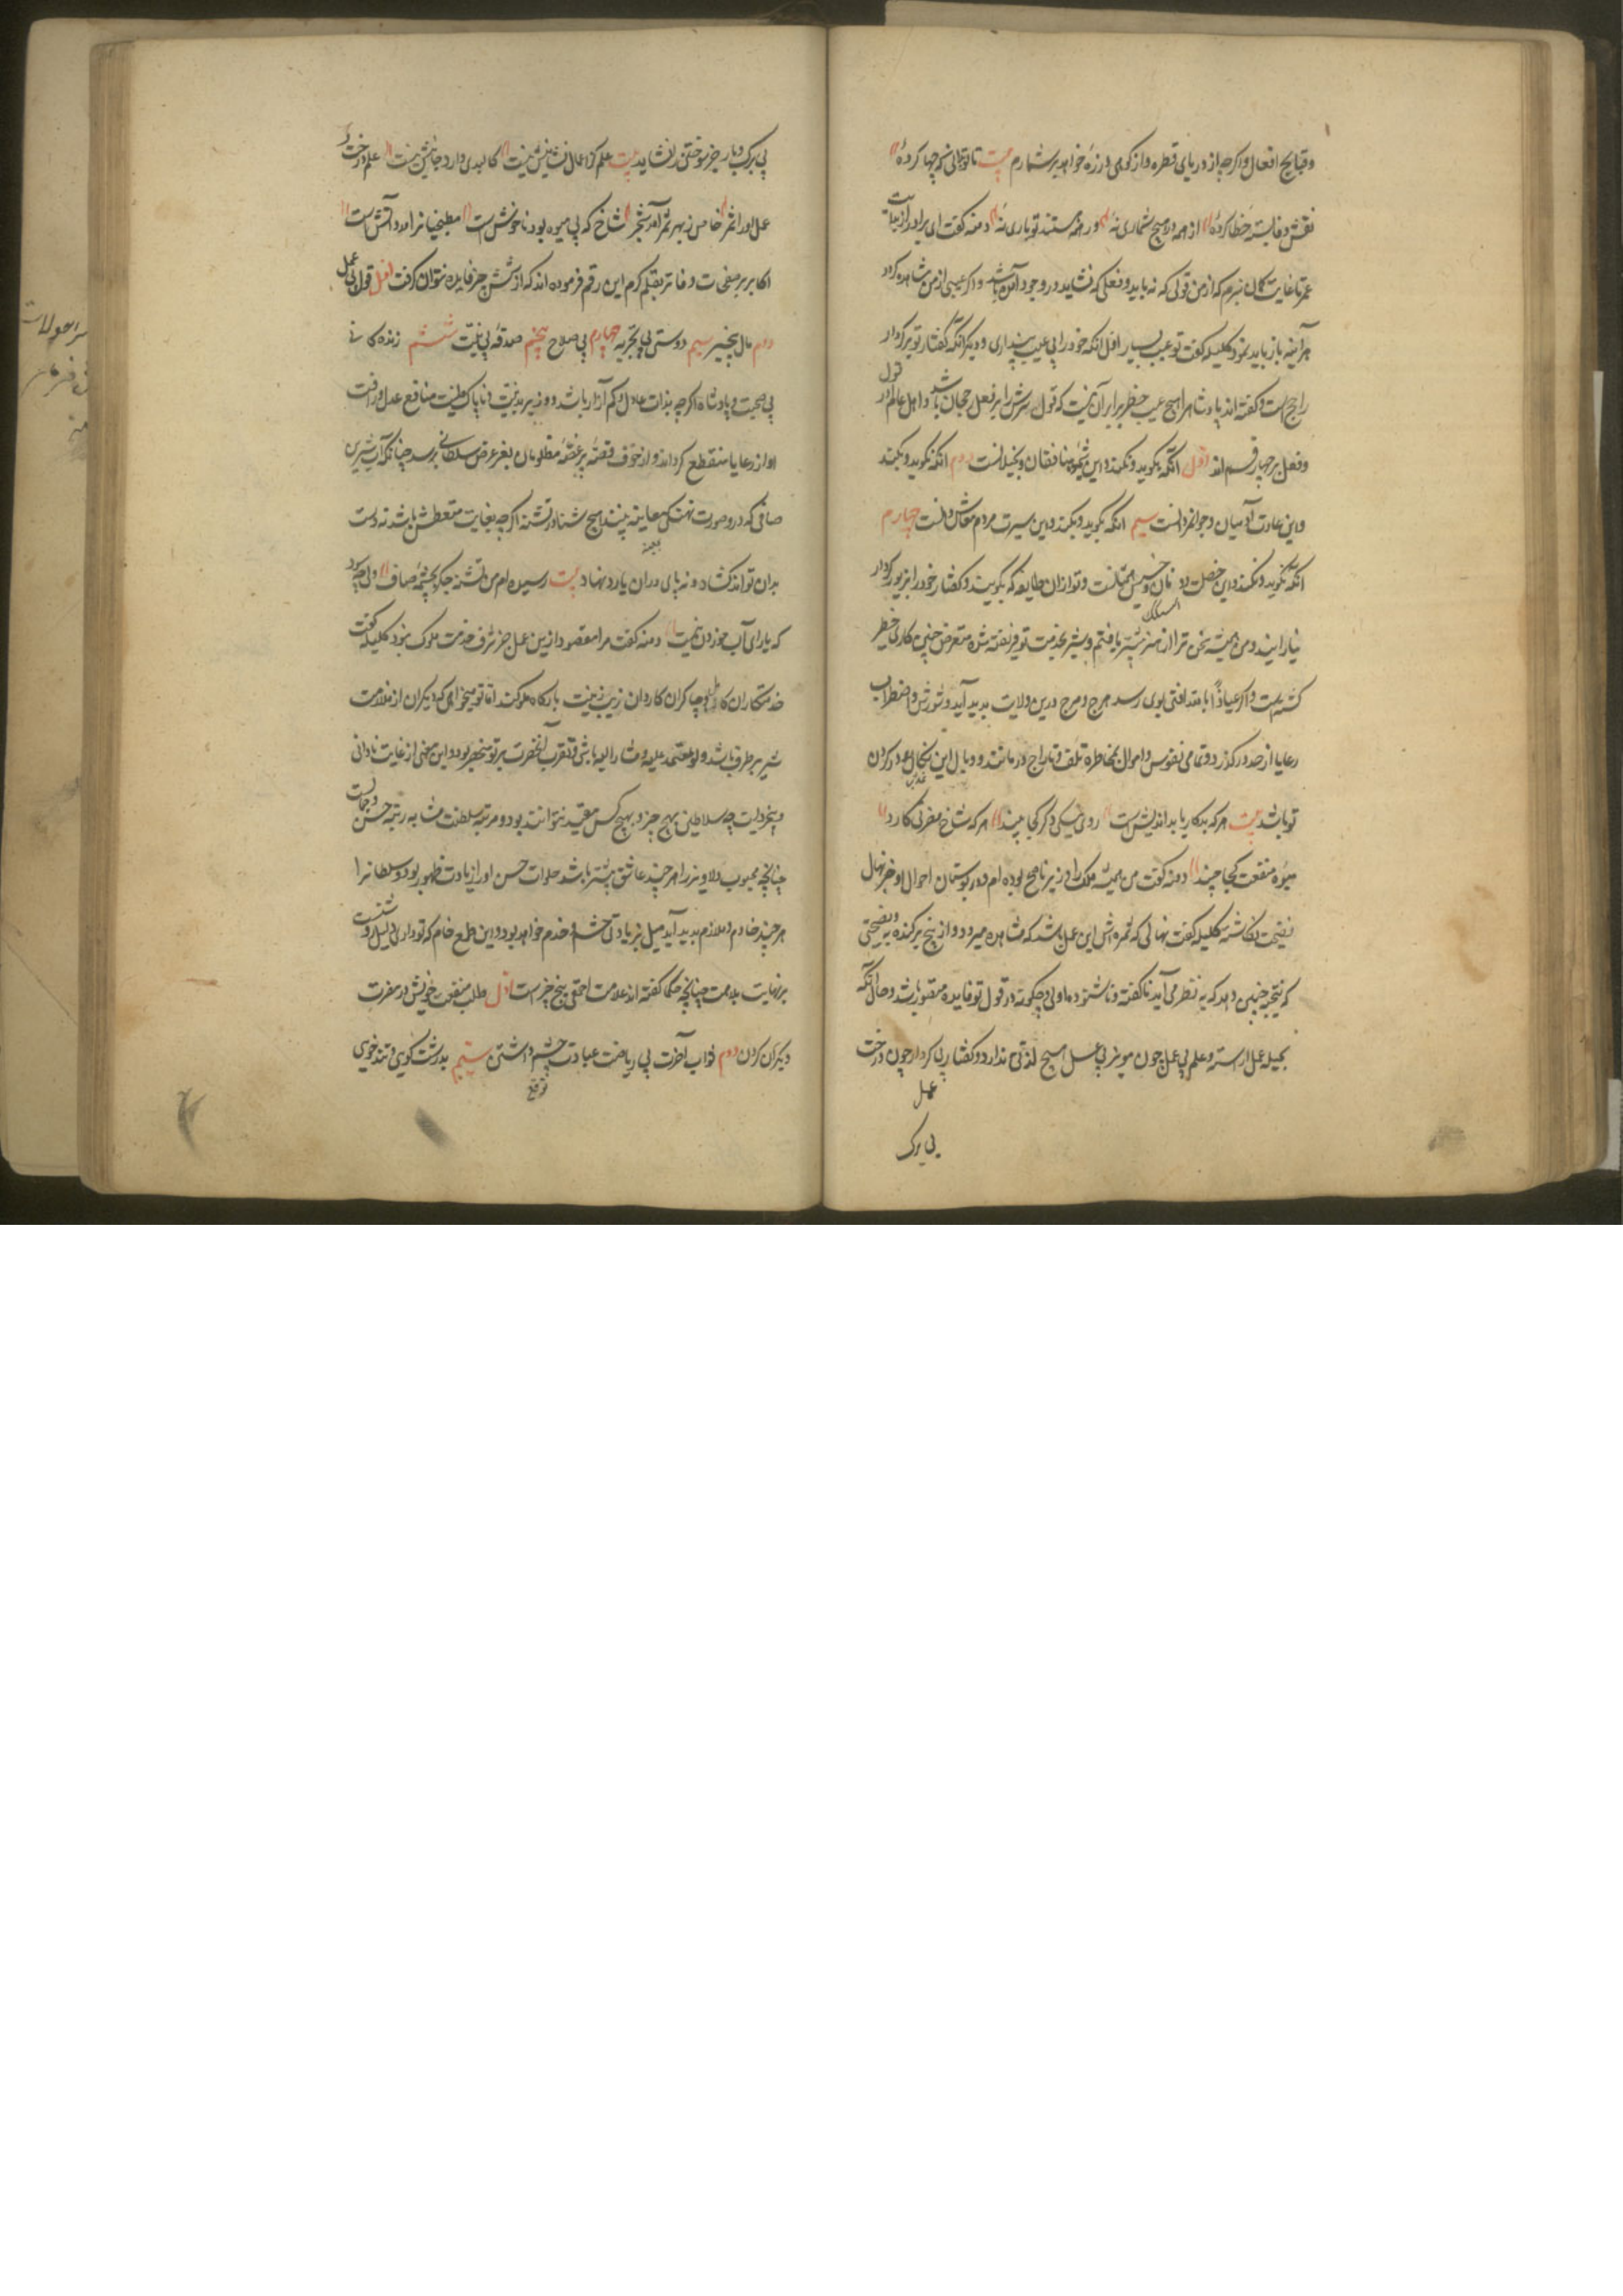 و قبایح افعال و اکرچه از دریای قطره و از کوهی ذرهٔ خواهد بر شمارم بیت تا توانی که چها کردهٔ
نقش دغا باخته خطا کردهٔ از همه در هیچ شماری نهٔ ور همه هستند تو باری نهٔ دمنه کفت ای برادر از بدایت
عمر تا غایت کمان نبرم که از من قولی که نه باید و فعلی که نشاید در وجود آمده باشد و اکر عیبی از من مشاهده کرده
هرآینه باز باید نمود کلیله کفت تو عیب بسیار اول انکه خود را بی عیب پنداری و دیکر انکه کفتار تو بر کردار
راجح است و کفته اند پادشاه را هیچ عیب خطر برابر آن نیست که قول سرش را بر فعل رجحان باشد و اهل عالم در قول
و فعل بر چهار قسم اند اول انکه بکوید و نکند و این شیوه منافقان و بخیلانست دوم انکه نکوید و بکند
و این عادت آدمیان و جوانمردانست سیم انکه بکوید و بکند و این سیرت مردم معاش دانست چهارم
انکه نکوید و نکند و این خصلت دونان و خسیس همتانست و تو از ان طایفه که بکویند و کفتار خود را بزیور کردار
نیارایند و من همیشه سخن ترا از هنر بیشتر یافتم و شیر بحدیث تو فریفته شده متعرض چنین کاری خطر
کشته است و اکر عیاذا بالله افتی بوی رسد هرج و مرج درین ولایت پدید آید و شورش و اضطراب
رعایا از حد در کذرد و تمامی نفوس و اموال بمخاطره تلف و تاراج در مانند و وبال این نکال عود در کردن
تو باشد بیت هر که بدکار یا بد اندیش است روی نیکی دکر کجا بیند هر که شاخ مضرتی کارد
میوه منفعت کجا چیند دمنه کفت من همیشه ملک را وزیر ناصح بوده ام و در بوستان احوال او جز نهال
نصیحت نکاشته کلیله کفت نهالی که ثمره اش این عمل باشد که مشاهده میرود از بیخ برکنده به و نصیحتی
که نتیجه چنین دهد که به نظر می آید ناکفته و ناشنوده اولی و چکونه در قول تو فایده متصور باشد و حال آنکه
بحیله عمل آراسته و علم بی عمل چون موم بی عسل هیچ لذتی ندارد و کفتار بی کردار چون درخت
عمل
بی برک
بی برک و بار جز سوختن را نشاید بیت علم کز اعمال نشانیش نیست کالبدی دارد و جانیش نیست علم درخت و
عمل او را ثمر خاص ز بهر ثمر آمد شجر شاخ که بی میوه بود ناخوش است مطبخیانرا مدد آتش است
اکابر بر صفحات دفاتر بقلم کرم این رقم فرموده اند که از شش چیز فایده نتوان کرفت اول قول بی عمل
دوم مال بی خیر سیم دوستی بی تجربه چهارم بی صلاح پنجم صدقه بی نیت ششم زندکانی
بی صحبت و پادشاه اکرچه بذات عادل و کم آزار باشد و وزیر بدنیت و ناپاک طینت منافع عدل و رافت
او از رعایا منقطع کرداند و از خوف قصه پر غصه مظلومان بعز عرض سلطانی نرسد چنانکه آب شیرین
صافی که در و صورت نهنکی معاینه بینند هیچ شناور تشنه اکرچه بغایت متعطش باشد نه دست
بدان تواند کشاد و نه پای در ان یارد نهاد بیت رسیده ام من تشنه جکر بچشمهٔ صاف ولی چه سود
که یارای آب خوردن نیست دمنه کفت مرا مقصود ازین عمل جز شرف خدمت ملوک نبود کلیله کفت
خدمتکاران کافی و چاکران کاردان زیب و زینت بارکاه ملوکند اما تو میخواهی که دیکران از ملازمت
شیر بر طرف باشد و تو معتمد علیه و مشار الیه باشی و تقرب آنحضرت بر تو منحصر بود و این معنی از غایت نادانی
و بیخردیست چه سلاطین بهیچ چیز و بهیچ کس مقید نتوانند بود و مرتبه سلطنت مشابه رتبه حسن و جمالست
چنانچه محبوب دلاویز را هر چند عاشق بیشتر باشد جلوات حسن او را زیادت ظهور بود و سلطانرا
هر چند خادم و ملازم پدید آید میل بزیادتی حشم و خدم خواهد بود و این طمع خام که تو داری دلیل روشنست
بر نهایت بلاهت چنانچه حکما کفته اند علامت احمقی پنج چیز است اول طلب منفعت خویش در مضرت
دیکران کردن دوم ثواب آخرت بی ریاضت عبادت چشم داشتن سیم بدرشت کویی و تندخویی
توقع